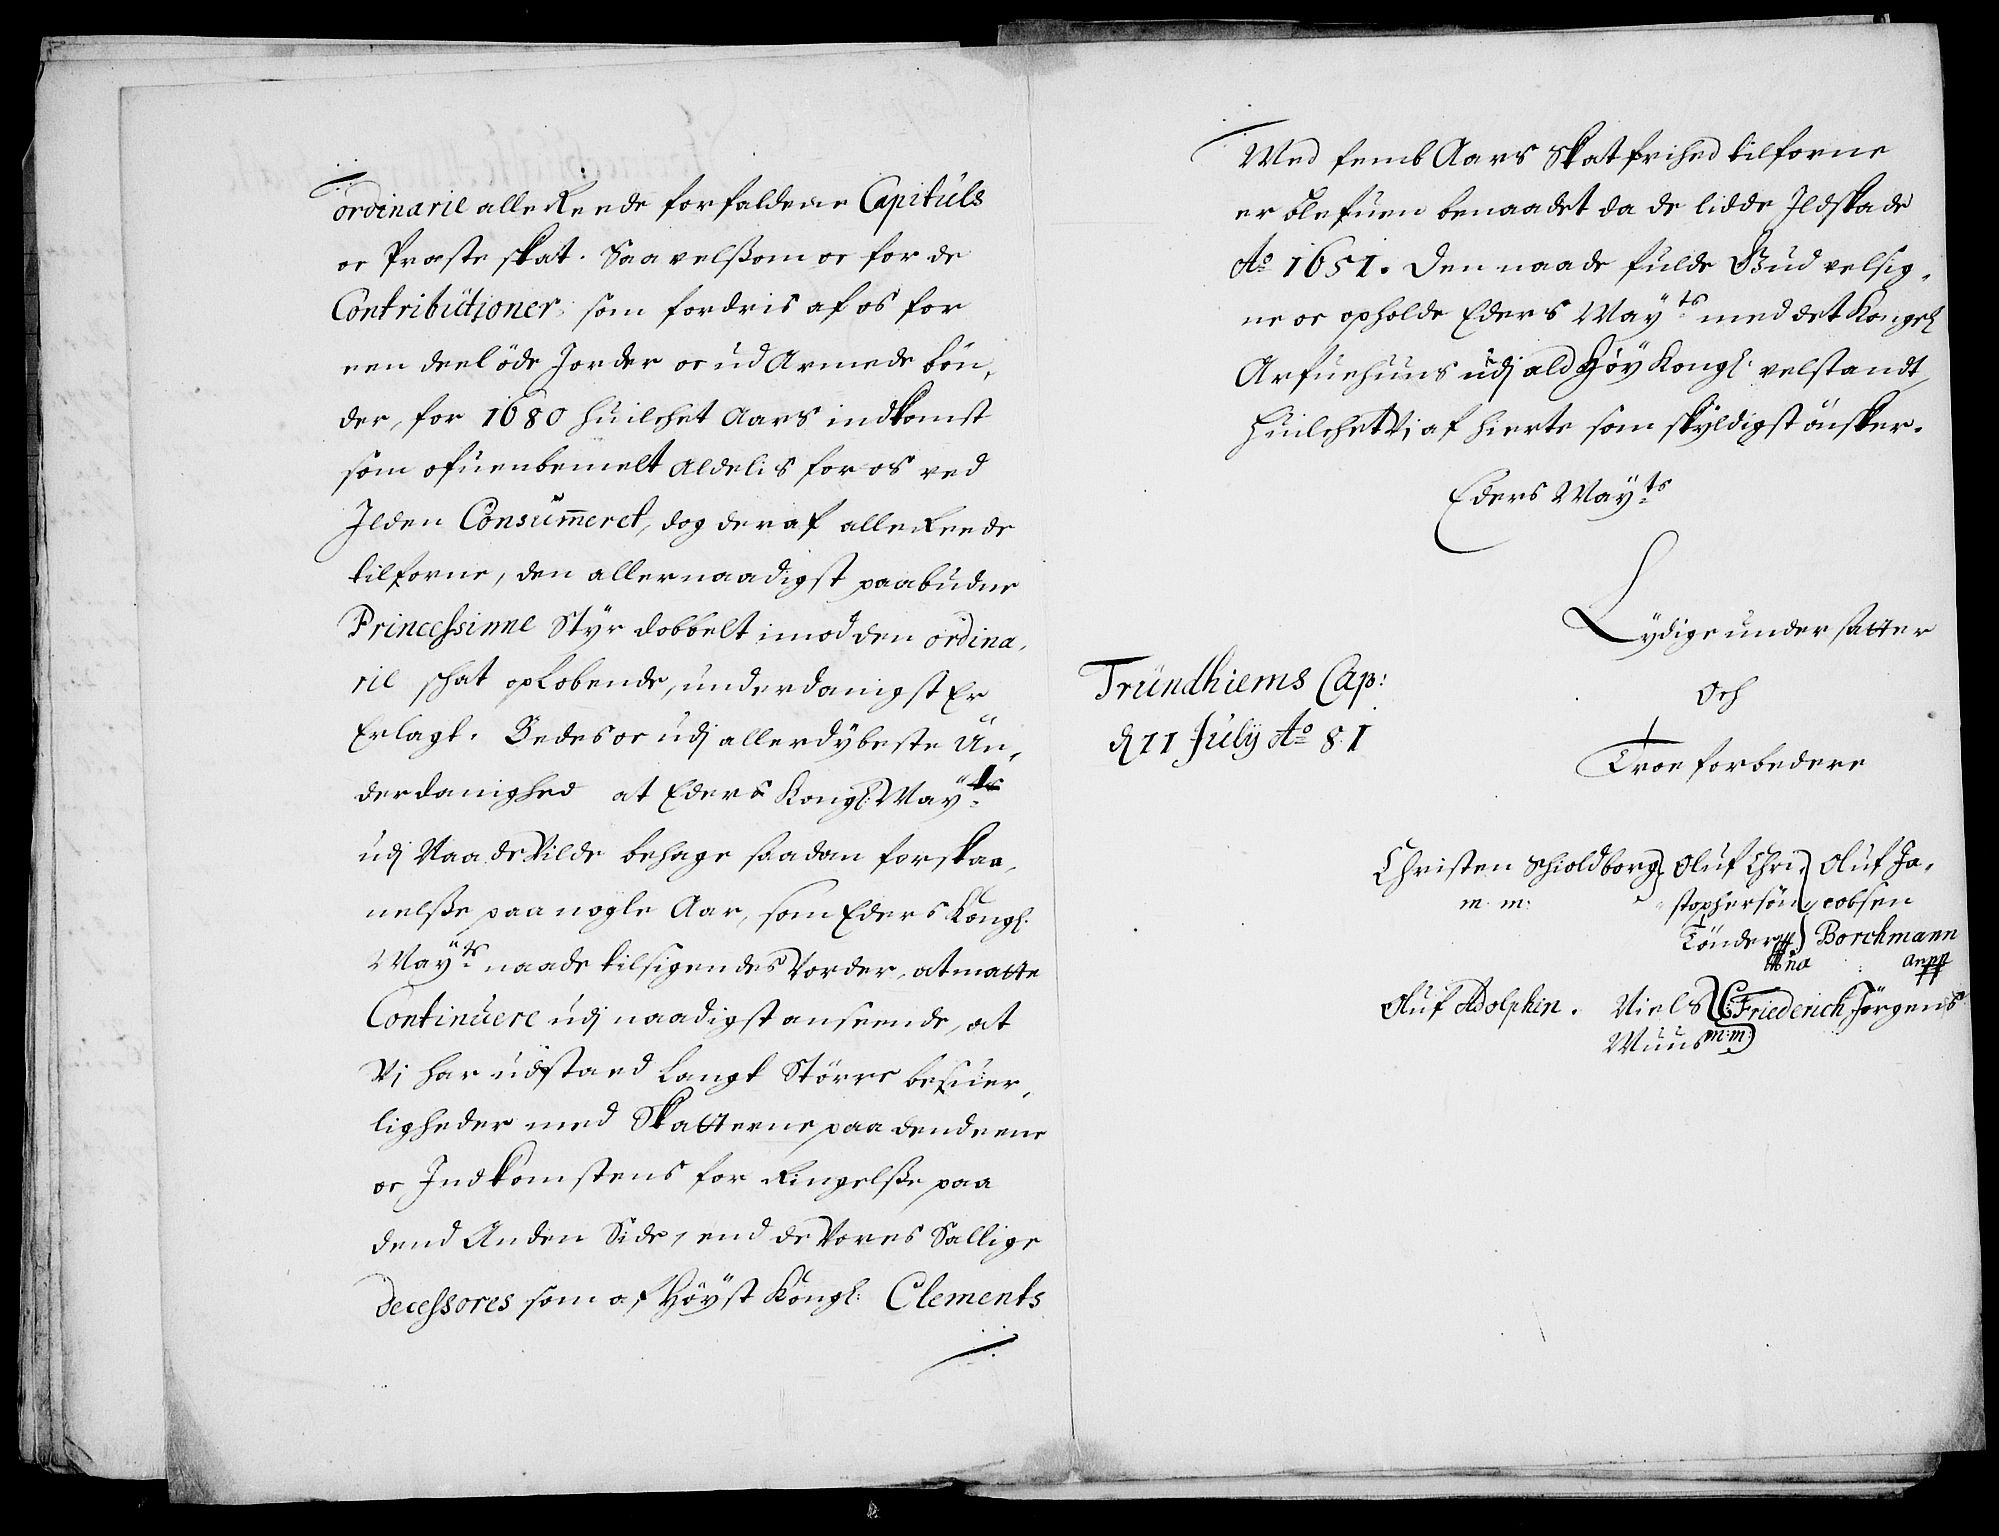 ordinarie allereede forfaldene Capituls
oc Præste skat. Saavelsom oc for de
Contributioner som fordris af os for
een deel öde Jorder oc udArmede bön,
der, for 1680 huilchet Aars indkomst
som ofuenbemelt Aldelis for os ved
Ilden Consumeret, dog deraf allereede
tilforne, den allernaadigst paabudne
Princessinne Styr dobbelt imod den ordina,
rie schat opLobende, underdanigst Er
Erlagt. Bedes oc udj allerdybeste Un,
derdanighed at Eders Kongl: Mayts
udj Naade Vilde behage saadan forskaa,
nelsse paa nogle Aar, som Eders Kongl:
Mayts naade tilsigendes Vorder, at matte
Continuere udj naadigst anseende, at
Vj har udstaaed Langt Större besuer,
ligheder med Skatterne paa dend eene
oc Indkomstens forRingelsse paa
dend Anden Side, end de Vores Sallige
Decessores som af Höyst Kongl: Clements
Med femb Aars Skatfrihed tilforne
er blefuen benaadet da de lidde Ildskade
Ao 1651. Den naade fulde Gud velsig,
ne oc opholde Eders Mayts med det Kongel
Arfuehuus udj ald Höy Kongl: velstandt,
huilchet Vj af hierte som skyldigst önsker.
Eders Mayts
Lydige undersatter
Och
Troe forbedere
Trundhiems Cap:
d 11 July Ao 81
Christen Schioldborg Oluf Chri, Oluf Ja,
m. m: stophersön cobsen
Tönder Borchmann
Oluf Adolphin. Niels Friederich Jörgens
Muus m:m: